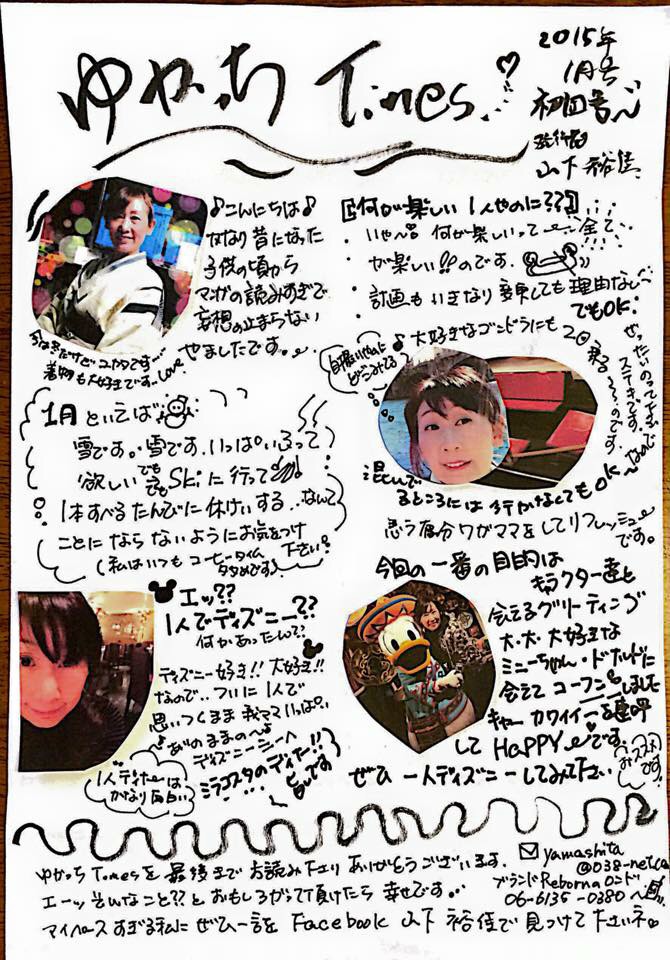 ゆかっち Times!
2015年
1月号
初回号〜
発行者
山下 裕佳
♪こんにちは♪
かなり昔になった
子供の頃から
マンガの読みすぎで
妄想の止まらない
やましたです。
着物も大好きです。Love
【何が楽しい 1人やのに??】
・いや〜 何が楽しいって 全て
が楽しい!!のです。
・計画もいきなり変更しても理由なし
でもOK!
♪大好きなゴンドラにも
2回
乗る〜〜のです。
ぜったいのってて
ステキです。
混んで
るところには行かなくてもOK〜
思う存分ワガママをしてリフレッシュ
です。
1月といえば
雪です。雪です。いっぱいふって
欲しい
でもでもSkiに行って
1本すべるたんびに休けいする…なんて
ことにならないようにお気をつけ
下さい!
(私はいつもコーヒータイム
多めです)
エッ??
1人でディズニー??
何かあったんで?
ディズニー好き!!大好き!!
なので..ついに1人で
思いつくまま 我ママいっぱい
♪ありのままの〜♪
ディズニーシーへ
ミラコスタのディナー!!
1人ディナーは
かなり面白い
今回の一番の目的は
キャラクター達と
会えるグリーティング
大・大・大好きな
ミニーちゃん・ドナルドに
会えて コーフンしました
キャー カワイイーを連呼
して HaPPYです。
ぜひ 一人ディズニーしてみて下さい
ゆかっち Timesを最後までお読み下さり ありがとうございます。
エーッ そんなこと??と おもしろがって頂けたら 幸せです。
マイペースすぎる私に ぜひ一言を Facebook 山下 裕佳で見つけて下さいネ
yamashita
@038-net.ca
ブランドReborn
06-6135-0380